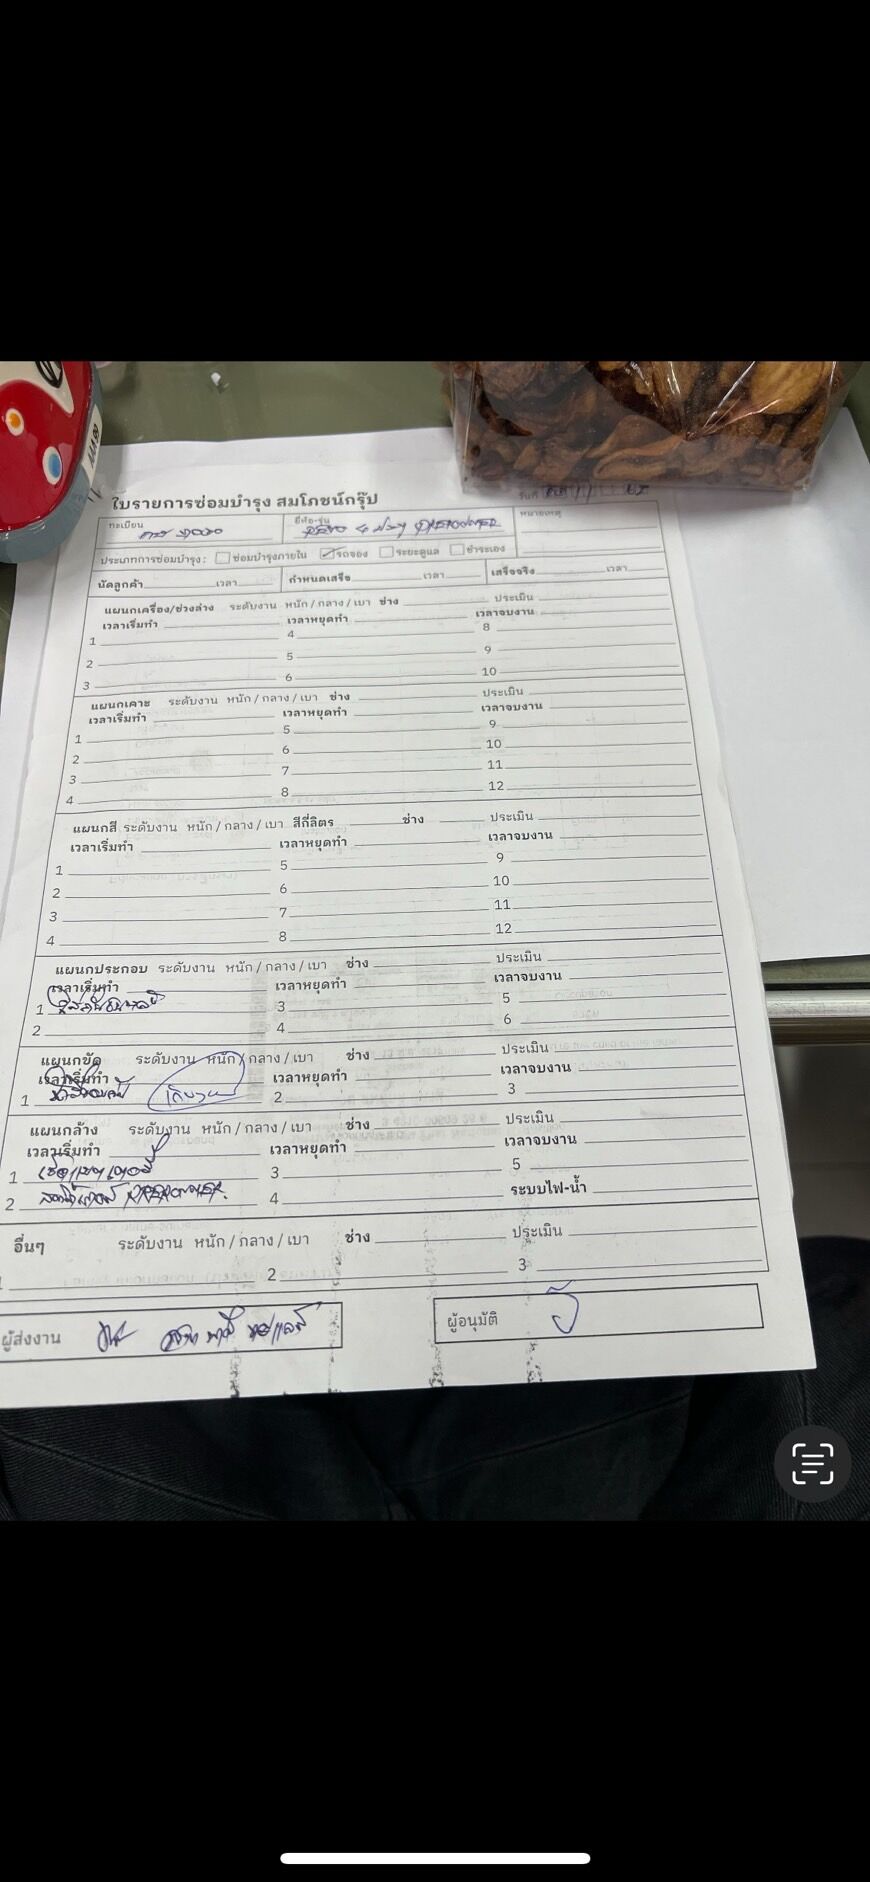 ใบรายการซ่อมบำรุง สมโภชน์กรุ๊ป วันที่
ทะเบียน ยี่ห้อ-รุ่น หมายเหตุ
ประเภทการซ่อมบำรุง : ซ่อมบำรุงภายใน รถจอง ระยะดูแล ชำระเอง
นัดลูกค้า เวลา กำหนดเสร็จ เวลา เสร็จจริง เวลา
แผนกเครื่อง/ช่วงล่าง ระดับงาน หนัก / กลาง / เบา ช่าง ประเมิน
เวลาเริ่มทำ เวลาหยุดทำ เวลาจบงาน
1 4 8
2 5 9
3 6 10
แผนกเคาะ ระดับงาน หนัก / กลาง / เบา ช่าง ประเมิน
เวลาเริ่มทำ เวลาหยุดทำ เวลาจบงาน
1 5 9
2 6 10
3 7 11
4 8 12
แผนกสี ระดับงาน หนัก / กลาง / เบา สีกี่ลิตร ช่าง ประเมิน
เวลาเริ่มทำ เวลาหยุดทำ เวลาจบงาน
1 5 9
2 6 10
3 7 11
4 8 12
แผนกประกอบ ระดับงาน หนัก / กลาง / เบา ช่าง ประเมิน
เวลาเริ่มทำ เวลาหยุดทำ เวลาจบงาน
1 3 5
2 4 6
แผนกขัด ระดับงาน หนัก / กลาง / เบา ช่าง ประเมิน
เวลาเริ่มทำ เวลาหยุดทำ เวลาจบงาน
1 2 3
แผนกล้าง ระดับงาน หนัก / กลาง / เบา ช่าง ประเมิน
เวลาเริ่มทำ เวลาหยุดทำ เวลาจบงาน
1 3 5
2 4 ระบบไฟ-น้ำ
อื่นๆ ระดับงาน หนัก / กลาง / เบา ช่าง ประเมิน
2 3
ผู้ส่งงาน ผู้อนุมัติ